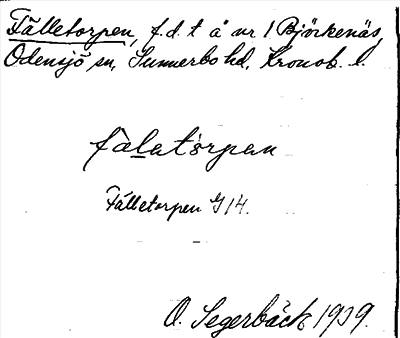 Fälletorpen, f.d. t å nr 1 Björkenäs,
Odensjö sn, Sunnerbo hd, Kronob. l.
fàlatòrpen
Fälletorpen G 14.
O. Segerbäck 1939.